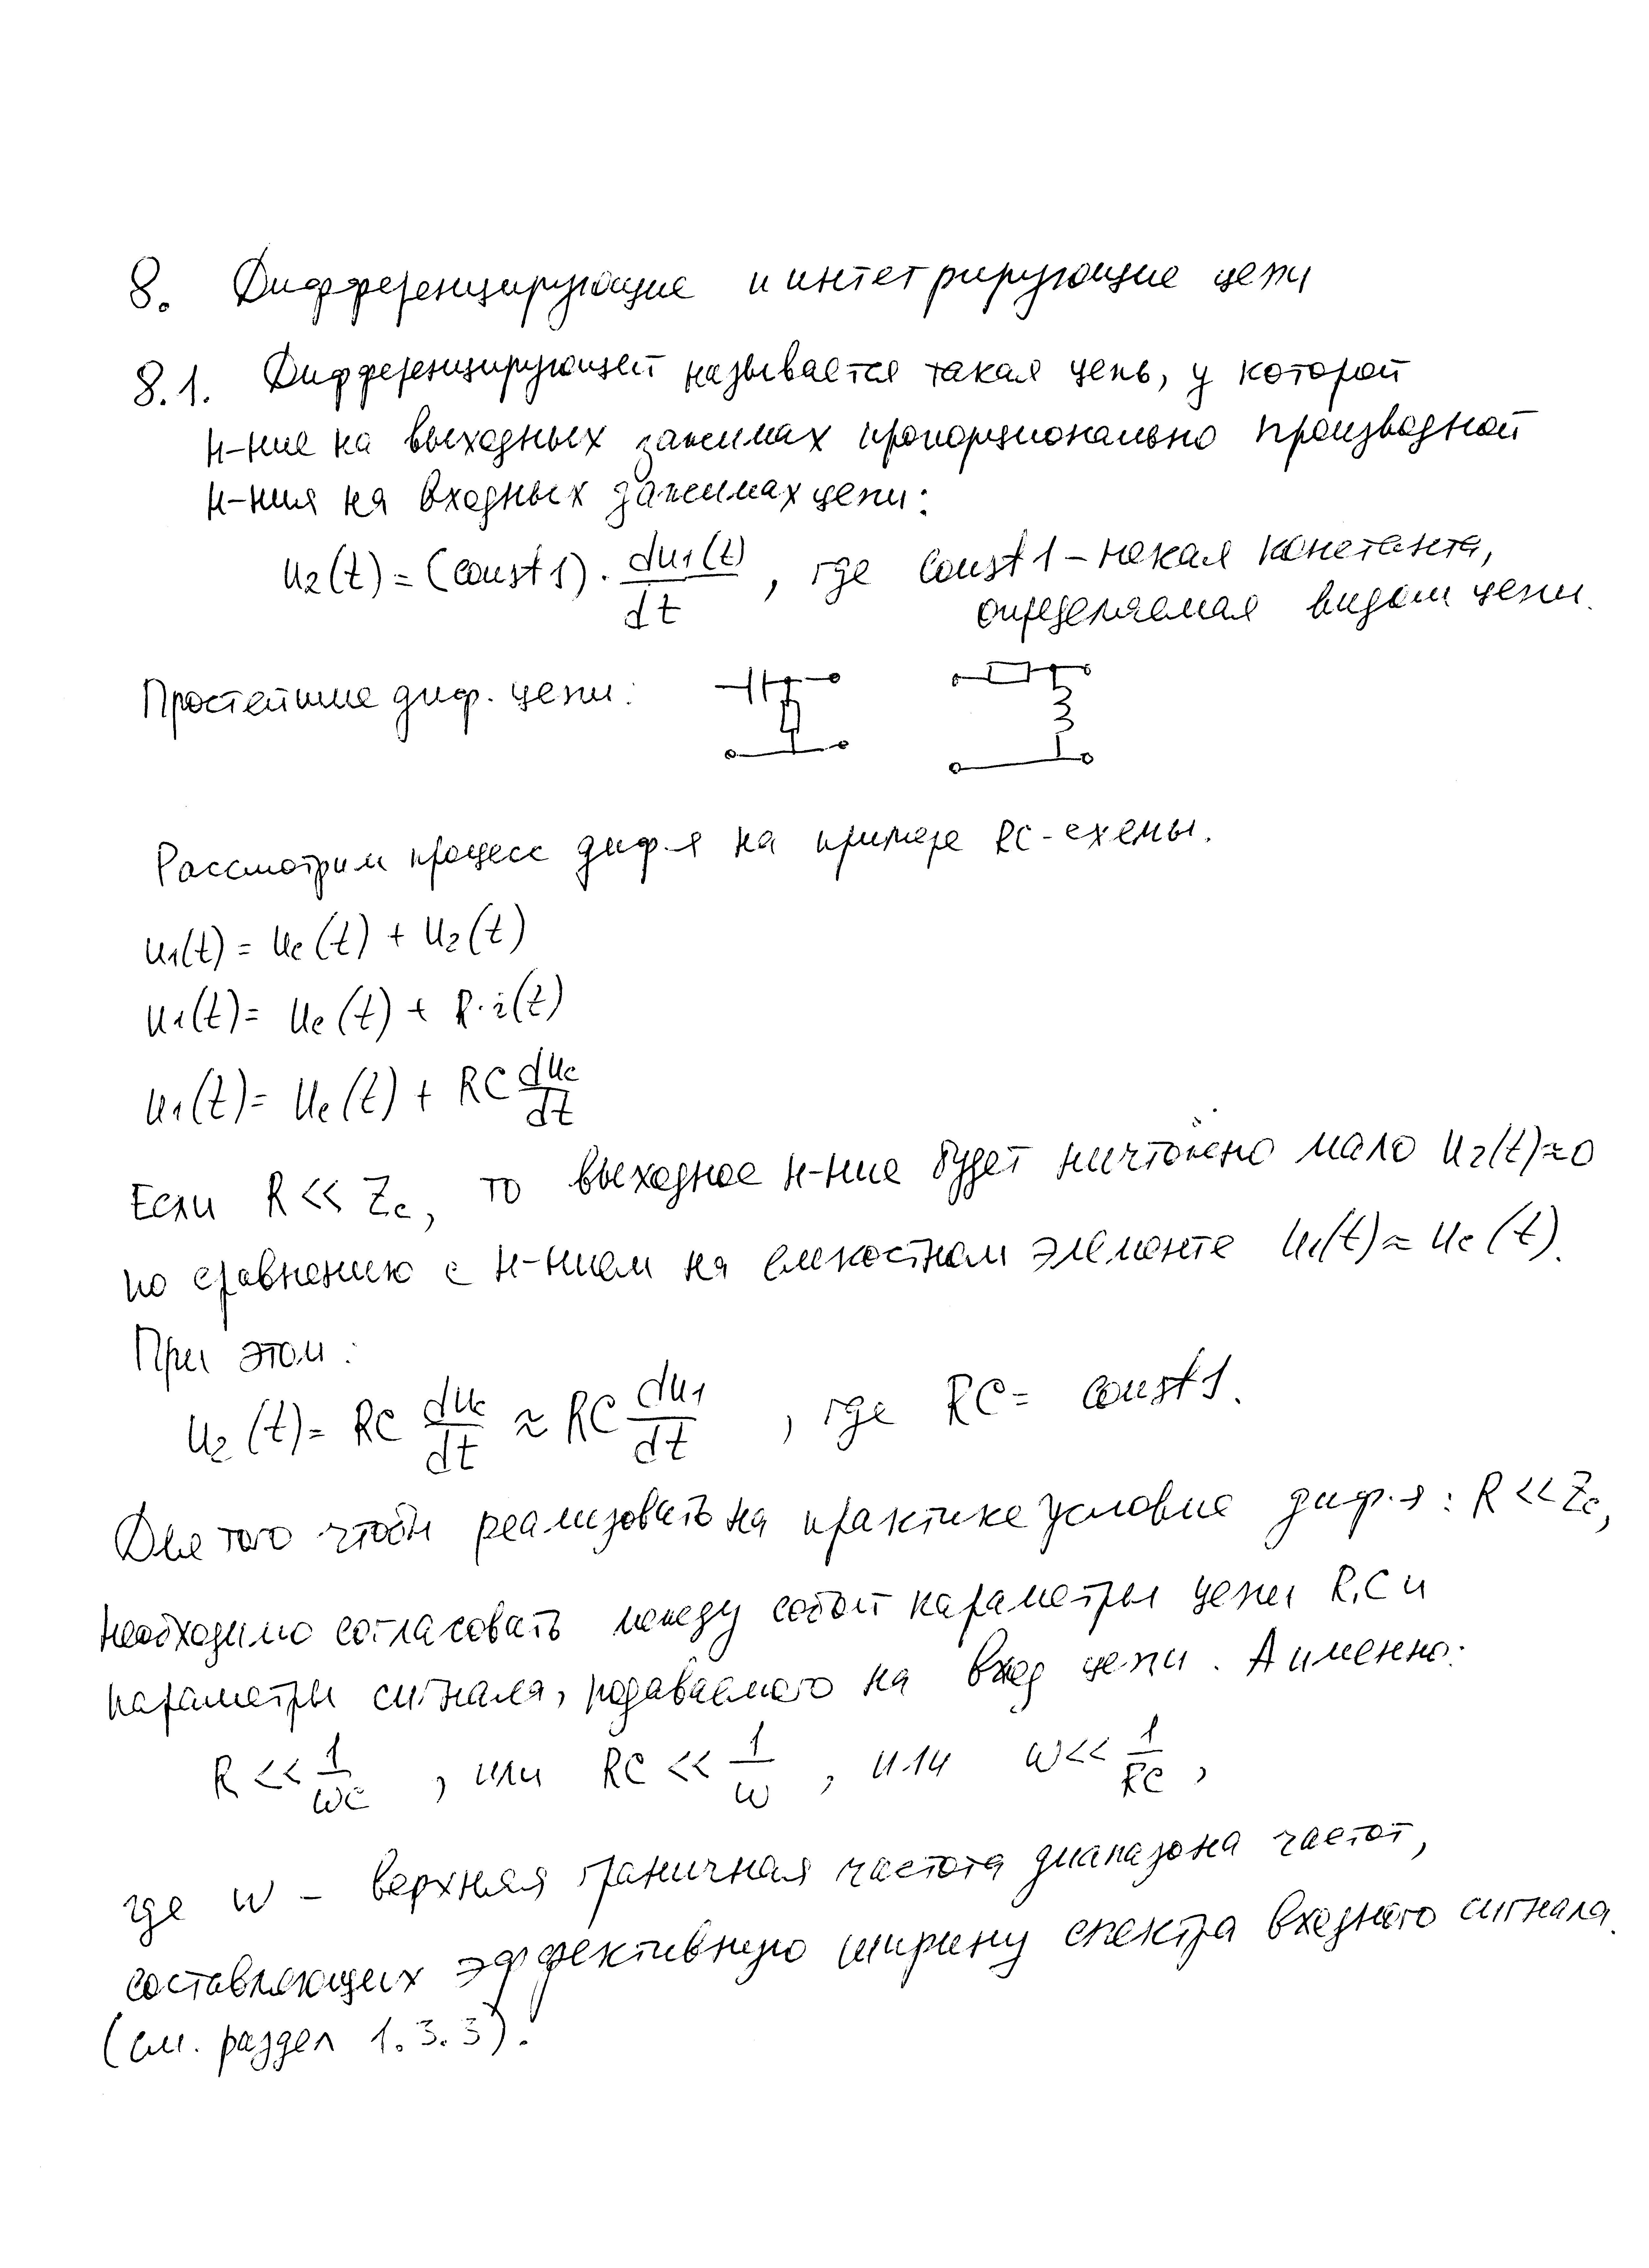 8. Дифференцирующие и интегрирующие цепи
8.1. Дифференцирующей называется такая цепь, у которой
н-ние на выходных зажимах пропорционально производной
н-ния на входных зажимах цепи:
u₂(t) = (const1) · du₁(t)/dt , где const1 – некая константа,
определяемая видом цепи.
Простейшие диф. цепи:
Рассмотрим процесс диф-я на примере RC-схемы.
u₁(t) = uc(t) + u₂(t)
u₁(t) = uc(t) + R·i(t)
u₁(t) = uc(t) + RC duc/dt
Если R << Zc, то выходное н-ние будет ничтожно мало u₂(t)≈0
по сравнению с н-нием на емкостном элементе u₁(t) ≈ uc(t).
При этом:
u₂(t) = RC duc/dt ≈ RC du₁/dt , где RC = const1.
Для того чтобы реализовать на практике условие диф-я: R << Zc,
необходимо согласовать между собой параметры цепи R,C и
параметры сигнала, подаваемого на вход цепи. А именно:
R << 1/ωC , или RC << 1/ω , или ω << 1/RC ,
где ω – верхняя граничная частота диапазона частот,
составляющих эффективную ширину спектра входного сигнала.
(см. раздел 1.3.3).